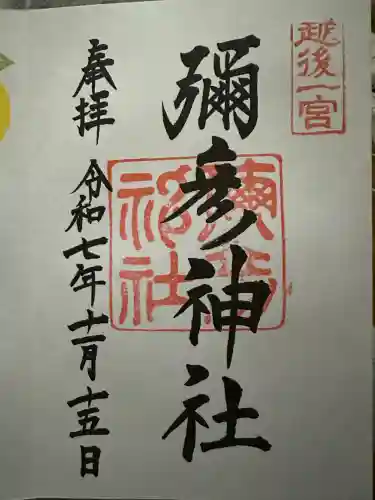 越後一宮
彌彦神社
奉拝
令和七年十一月十五日
彌彦
神社